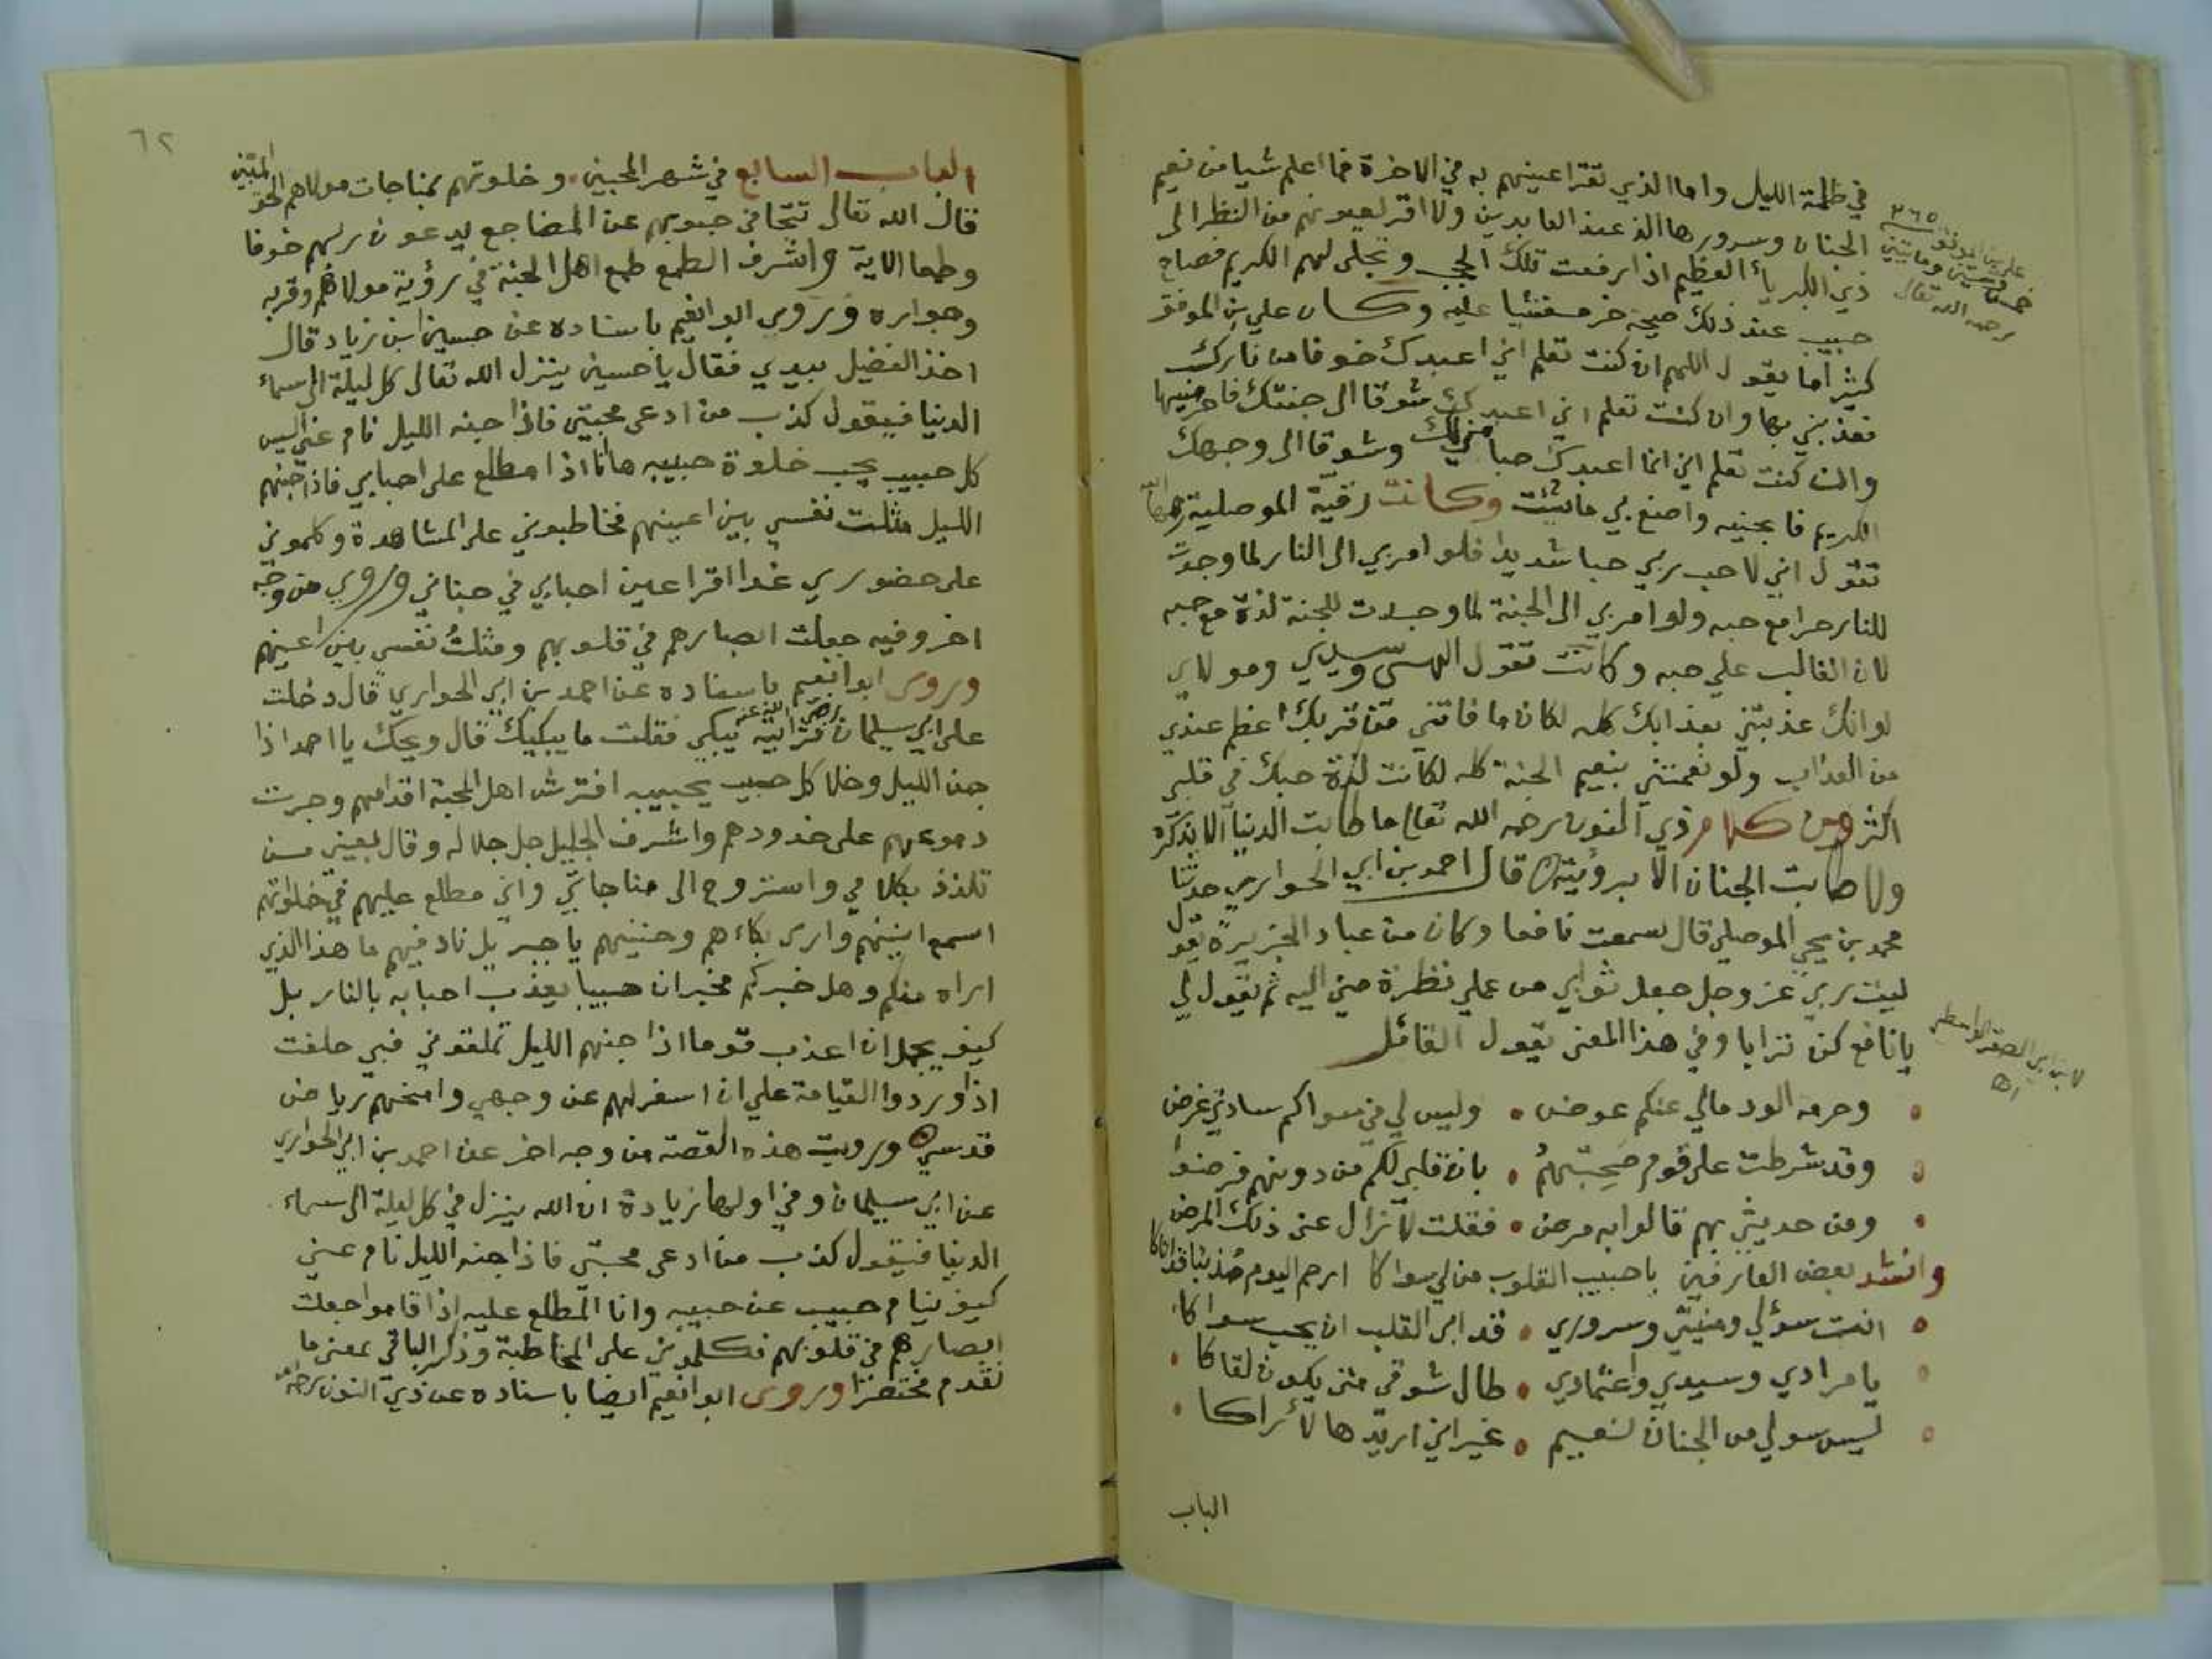 في ظلمة الليل واما الذي تقر اعينهم به في الاخرة فما اعلم شيا من نعيم
الجنان وسرورها الذ عند العابدين ولا اقر لعيونهم من النظر الى
ذي الكبرياء العظيم اذا رفعت تلك الحجب وتجلى لهم الكريم فصاح
حبيب عند ذلك صيحة خر مغشيا عليه وكان علي بن الموفق
كثيرا ما يقول اللهم ان كنت تعلم اني اعبدك خوفا من نارك
فعذبني بها وان كنت تعلم اني اعبدك شوقا الى جنتك فاحرمنيها
وان كنت تعلم اني انما اعبدك حبا مني لك وشوقا الى وجهك
الكريم فابحنيه واصنع بي ما شئت وكانت رقية الموصلية
تقول اني لاحب ربي حبا شديدا فلو امر بي الى النار لما وجدت
للنار حرا مع حبه ولو امر بي الى الجنة لما وجدت للجنة لذة مع حبه
لان الغالب علي حبه وكانت تقول الهي وسيدي ومولاي
لو انك عذبتني بعذابك كله لكان ما فاتني من قربك اعظم عندي
من العذاب ولو نعمتني بنعيم الجنة كله لكانت لذة حبك في قلبي
اكثر ومن كلام ذي النون رحمه الله تعالى ما طابت الدنيا الا بذكره
ولا طابت الجنان الا برؤيته قال احمد بن ابي الحواري حدثنا
محمد بن يحيى الموصلي قال سمعت نافعا وكان من عباد الجزيرة يقول
ليت ربي عز وجل جعل ثوابي من عملي نظرة مني اليه ثم يقول لي
يا نافع كن ترابا وفي هذا المعنى يقول القائل
وحرمة الود مالي عنكم عوض • وليس لي في سواكم سادتي غرض
وقد شرطت على قوم صحبتهم • بان قلبي لكم من دونهم فرضوا
ومن حديثي بهم قالوا به مرض • فقلت لا زال عني ذلك المرض
وانشد بعض العارفين يا حبيب القلوب من لي سواكا ارحم اليوم مذنبا قد اتاكا
انت سؤلي ومنيتي وسروري • قد ابى القلب ان يحب سواكا
يا مرادي وسيدي واعتمادي • طال شوقي متى يكون لقاكا
ليس سولي من الجنان نعيم • غير اني اريدها لأراكا
الباب
علي بن الموفق ٢٦٥
خمس وستين ومايتين
رحمه الله تعالى
٦٢
الباب السابع في شهر المحبين وخلوتهم بمناجات مولاهم الحق المبين
قال الله تعالى تتجافى جنوبهم عن المضاجع يدعون ربهم خوفا
وطمعا الاية واشرف الطمع طمع اهل الجنة في رؤية مولاهم وقربه
وجواره وروى ابو انعيم باسناده عن حسين ابن زياد قال
اخذ الفضيل بيدي فقال يا حسين ينزل الله تعالى كل ليلة الى سماء
الدنيا فيقول كذب من ادعى محبتي فاذا جنه الليل نام عني اليس
كل حبيب يحب خلوة حبيبه ها انا ذا مطلع على احبابي فاذا جنهم
الليل مثلت نفسي بين اعينهم فخاطبوني على المشاهدة وكلموني
على حضوري غدا اقر اعين احبابي في جناني وروي من وجه
اخر وفيه جعلت ابصارهم في قلوبهم ومثلتُ نفسي بين اعينهم
وروى ابو انعيم باسناده عن احمد بن ابي الحواري قال دخلت
على ابي سليمان رضي الله عنه فرأيته يبكي فقلت ما يبكيك قال ويحك يا احمد اذا
جن الليل وخلا كل حبيب بحبيبه افترش اهل المحبة اقدامهم وجرت
دموعهم على خدودهم واشرف الجليل جل جلاله وقال بعيني من
تلذذ بكلامي واستروح الى مناجاتي واني مطلع عليهم في خلواتهم
اسمع انينهم وارى بكاءهم وحنينهم يا جبريل ناد فيهم ما هذا الذي
اراه منكم وهل خبركم مخبر ان حبيبا يعذب احبابه بالنار بل
كيف يجمل ان اعذب قوما اذا جنهم الليل تملقوني فبي حلفت
اذا وردوا القيامة علي ان اسفر لهم عن وجهي وامنحهم رياض
قدسي ورويت هذه القصة من وجه اخر عن احمد بن ابي الحواري
عن ابي سليمان وفي اولها زيادة ان الله ينزل في كل ليلة الى سماء
الدنيا فيقول كذب من ادعى محبتي فاذا جنه الليل نام عني
كيف ينام حبيب عن حبيبه وانا المطلع عليه اذا قاموا جعلت
ابصارهم في قلوبهم فكلموني على المخاطبة وذكر الباقي بمعنى ما
تقدم مختصرا وروى ابو انعيم ايضا باسناده عن ذي النون رحمه الله